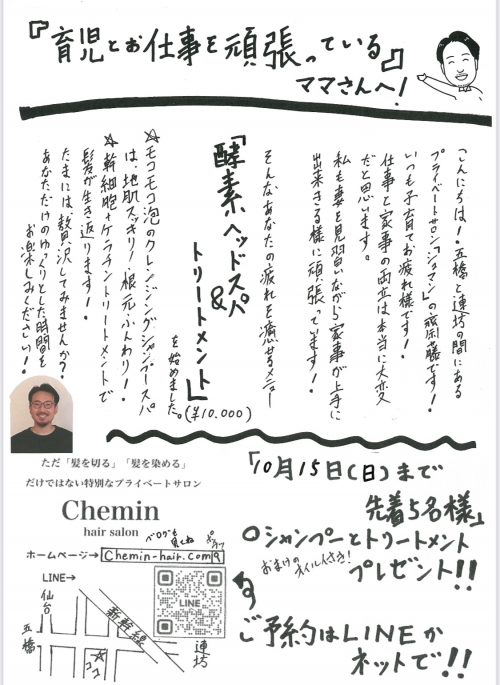 『育児とお仕事を頑張っている』
ママさんへ!
こんにちは!五橋と連坊の間にある
プライベートサロン「シュマン」の齋藤です!
いつも子育てお疲れ様です!
仕事と家事の両立は本当に大変
だと思います。
私も妻を見習いながら家事が上手に
出来きる様に頑張っています!
そんなあなたの疲れを癒せるメニュー
「酵素ヘッドスパ
&
トリートメント」
(¥10.000)
を始めました。
☆モコモコ泡のクレンジングシャンプースパ
は、地肌スッキリ!根元ふんわり!
☆幹細胞+ケラチントリートメントで
髪が生き返ります!
たまには贅沢してみませんか?
あなただけのゆっくりとした時間を
お楽しみください!
ただ「髪を切る」「髪を染める」
だけではない特別なプライベートサロン
Chemin
hair salon
ブログも
見てね
ポチッ
ホームページ→Chemin-hair.com
LINE→
LINE
仙台
新幹線
五橋
連坊
ココ
「10月15日(日)まで
先着5名様」
○シャンプーとトリートメント
おまけのオイル付き!
プレゼント!!
ご予約はLINEか
ネットで!!